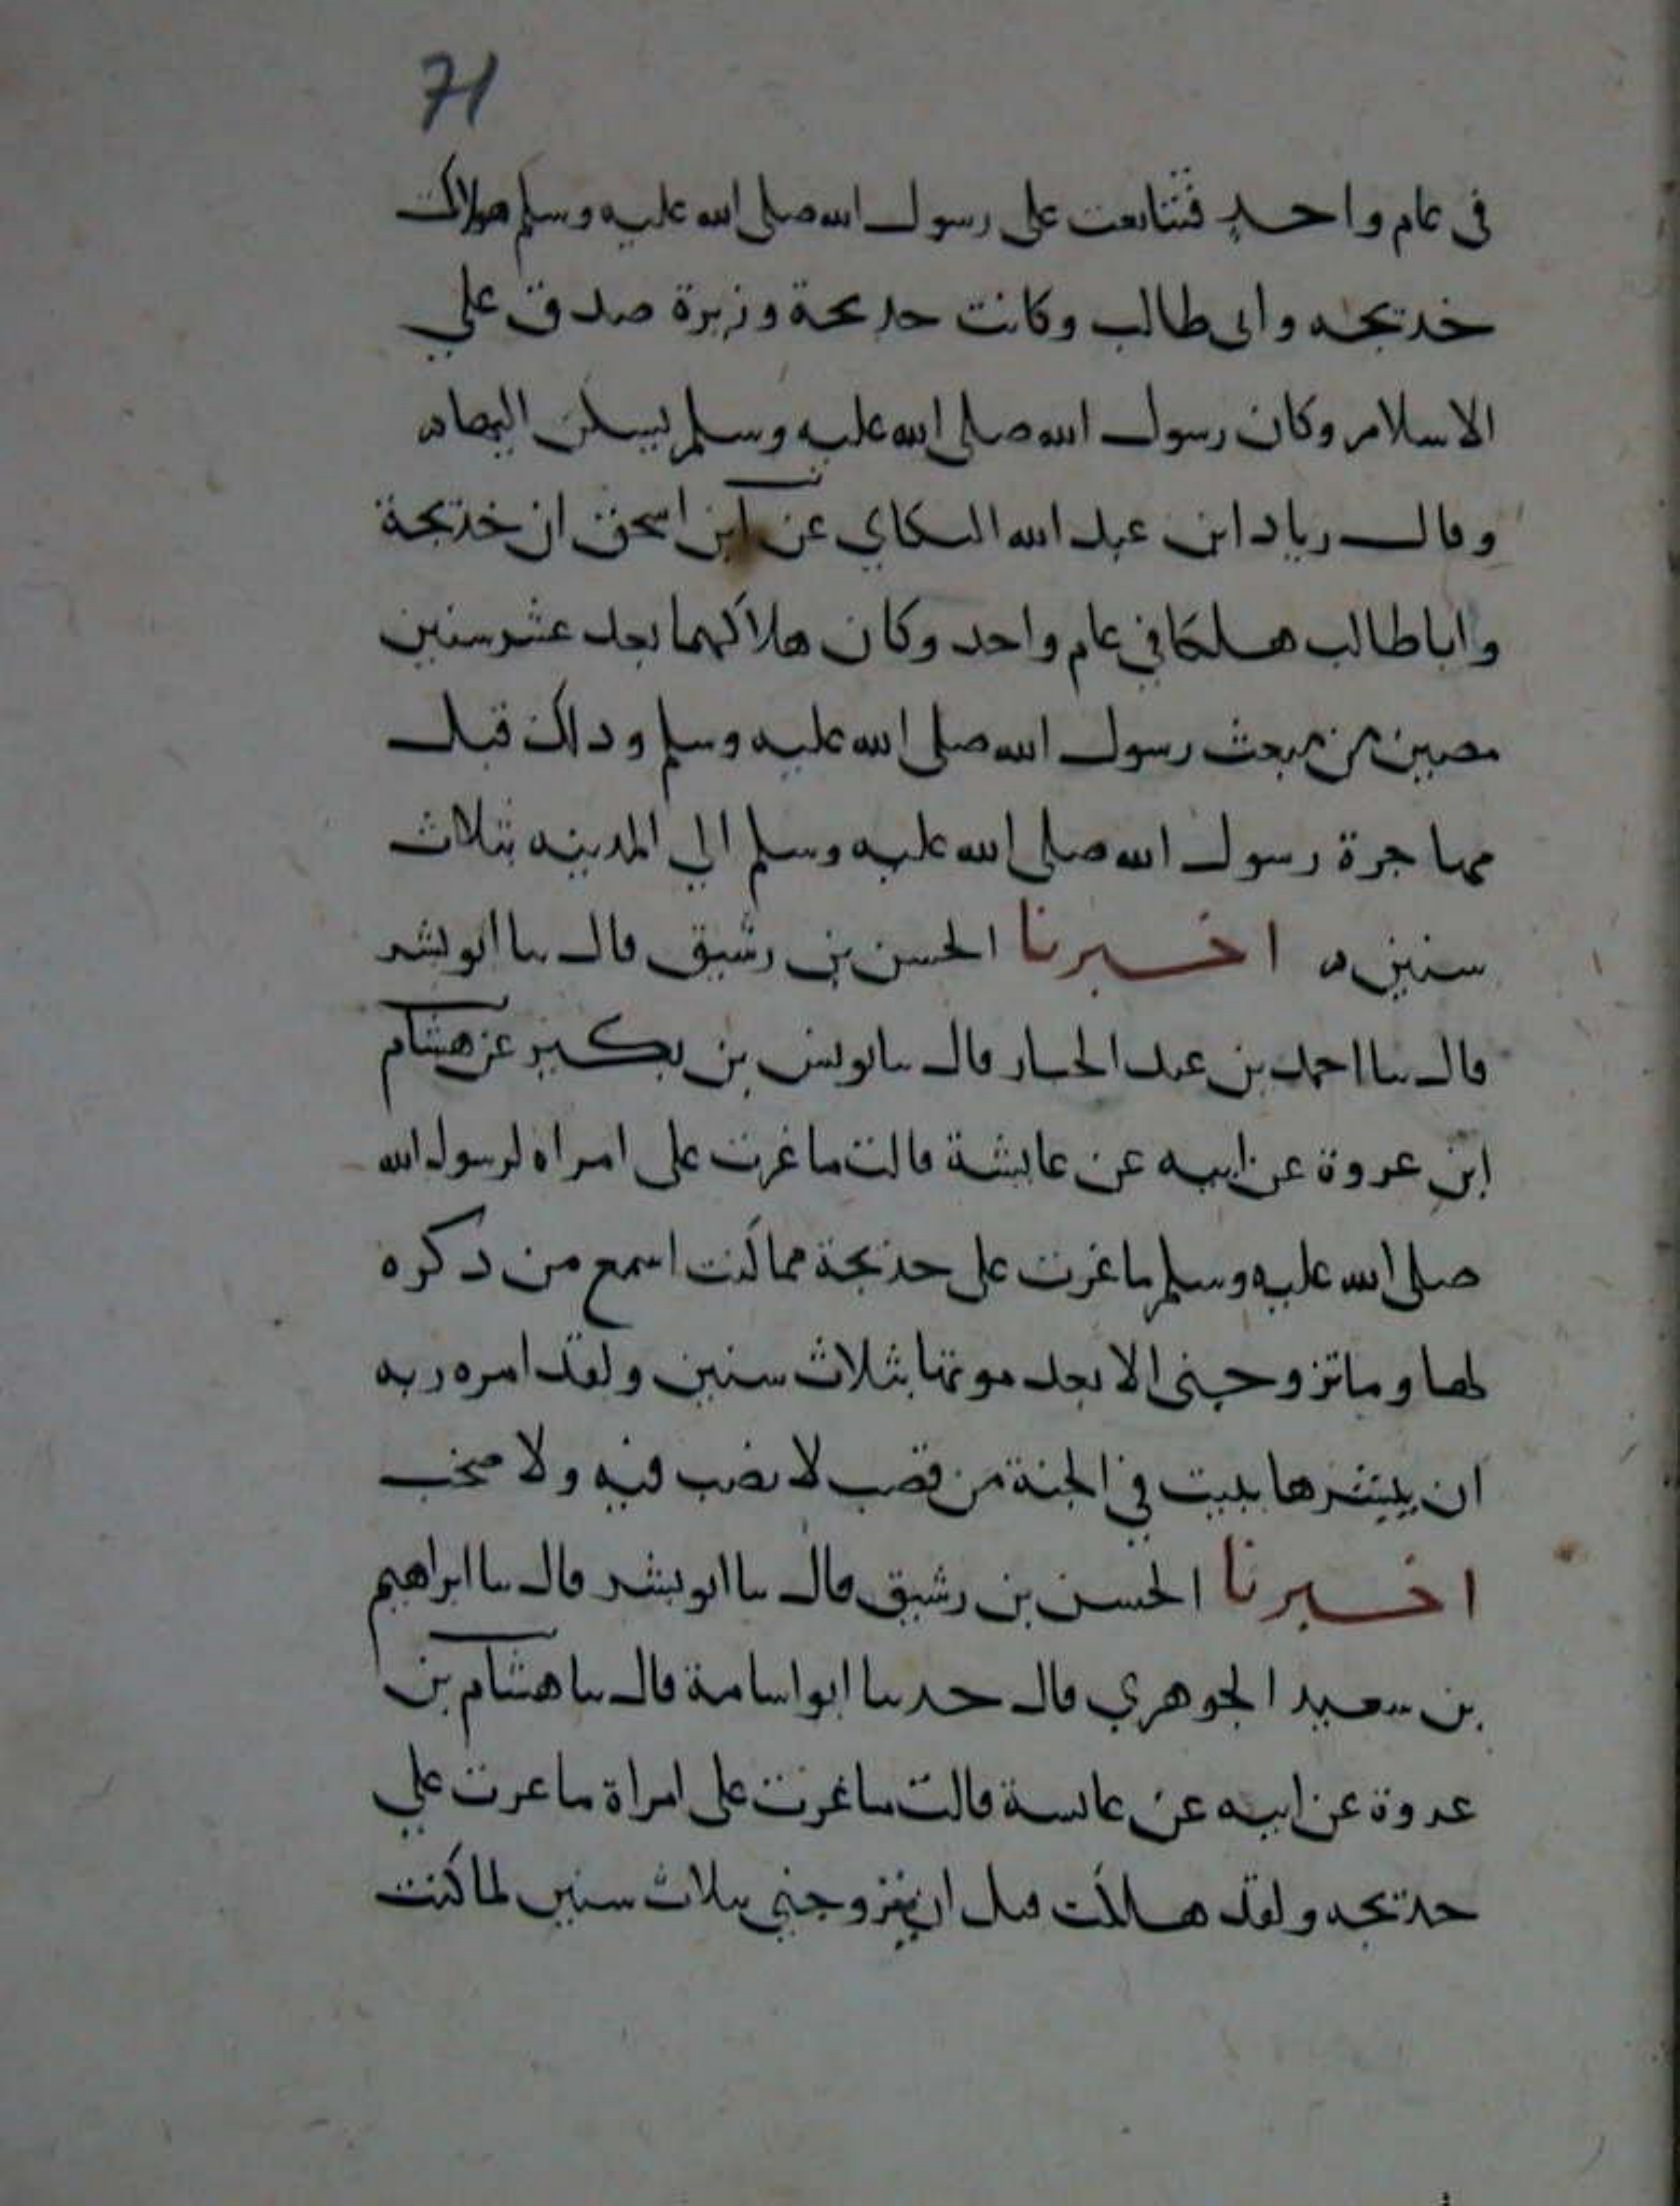 71
في عام واحد فتتابعت على رسول الله صلى الله عليه وسلم هلاك
خديجه وابى طالب وكانت خديجة وزيرة صدق علي
الاسلام وكان رسول الله صلى الله عليه وسلم يسكن اليها
وقال زياد ابن عبد الله البكاي عن ابن اسحق ان خديجة
وابا طالب هلكا في عام واحد وكان هلاكهما بعد عشر سنين
مضين من مبعث رسول الله صلى الله عليه وسلم وذلك قبل
مهاجرة رسول الله صلى الله عليه وسلم الي المدينه بثلاث
سنين اخبرنا الحسن بن رشيق قال نا ابو بشر
قال نا احمد بن عبد الجبار قال نا يونس بن بكير عن هشام
ابن عروة عن ابيه عن عايشة قالت ما غرت على امراه لرسول الله
صلى الله عليه وسلم ما غرت على خديجة مما كنت اسمع من ذكره
لها وما تزوجنى الا بعد موتها بثلاث سنين ولقد امره ربه
ان يبشرها ببيت في الجنة من قصب لا نصب فيه ولا صخب
اخبرنا الحسن بن رشيق قال نا ابو بشر قال نا ابراهيم
بن سعيد الجوهري قال حدثنا ابو اسامة قال نا هشام بن
عروة عن ابيه عن عايشة قالت ما غرت على امراة ما غرت علي
خديجه ولقد هلكت قبل ان يتزوجني بثلاث سنين لما كنت